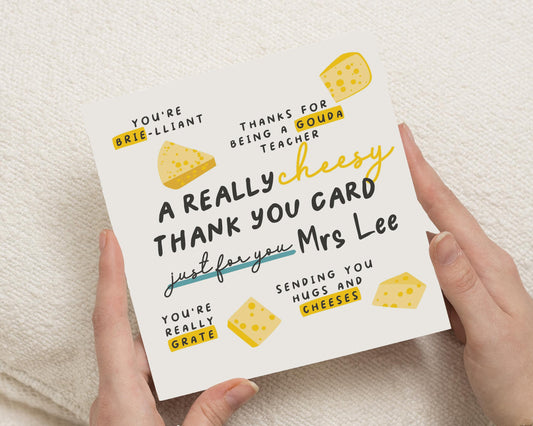 YOU'RE
BRIE-LLIANT
THANKS FOR
BEING A GOUDA
TEACHER
A REALLY cheesy
THANK YOU CARD
just for you Mrs Lee
YOU'RE
REALLY
GRATE
SENDING YOU
HUGS AND
CHEESES